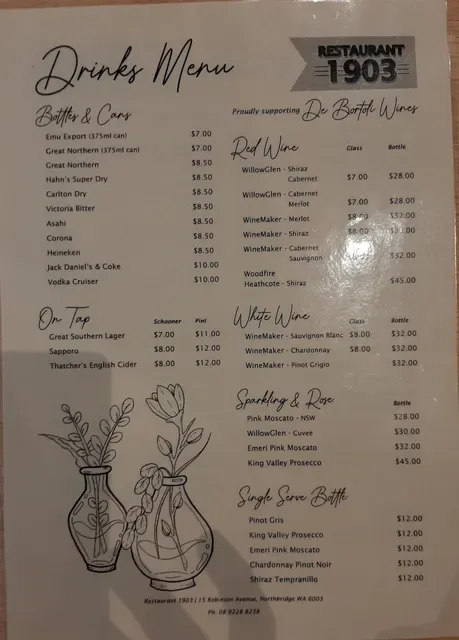 Drinks Menu
RESTAURANT
1903
Bottles & Cans
Emu Export (375ml can) $7.00
Great Northern (375ml can) $7.00
Great Northern $8.50
Hahn's Super Dry $8.50
Carlton Dry $8.50
Victoria Bitter $8.50
Asahi $8.50
Corona $8.50
Heineken $8.50
Jack Daniel's & Coke $10.00
Vodka Cruiser $10.00
On Tap Schooner Pint
Great Southern Lager $7.00 $11.00
Sapporo $8.00 $12.00
Thatcher's English Cider $8.00 $12.00
Proudly supporting De Bortoli Wines
Red Wine Glass Bottle
WillowGlen - Shiraz
Cabernet $7.00 $28.00
WillowGlen - Cabernet
Merlot $7.00 $28.00
WineMaker - Merlot $8.00 $32.00
WineMaker - Shiraz $8.00 $32.00
WineMaker - Cabernet
Sauvignon $32.00
Woodfire
Heathcote - Shiraz $45.00
White Wine Glass Bottle
WineMaker - Sauvignon Blanc $8.00 $32.00
WineMaker - Chardonnay $8.00 $32.00
WineMaker - Pinot Grigio $32.00
Sparkling & Rose Bottle
Pink Moscato - NSW $28.00
WillowGlen - Cuvee $30.00
Emeri Pink Moscato $32.00
King Valley Prosecco $45.00
Single Serve Bottle
Pinot Gris $12.00
King Valley Prosecco $12.00
Emeri Pink Moscato $12.00
Chardonnay Pinot Noir $12.00
Shiraz Tempranillo $12.00
Restaurant 1903 | 15 Robinson Avenue, Northbridge WA 6003
Ph: 08 9228 8238